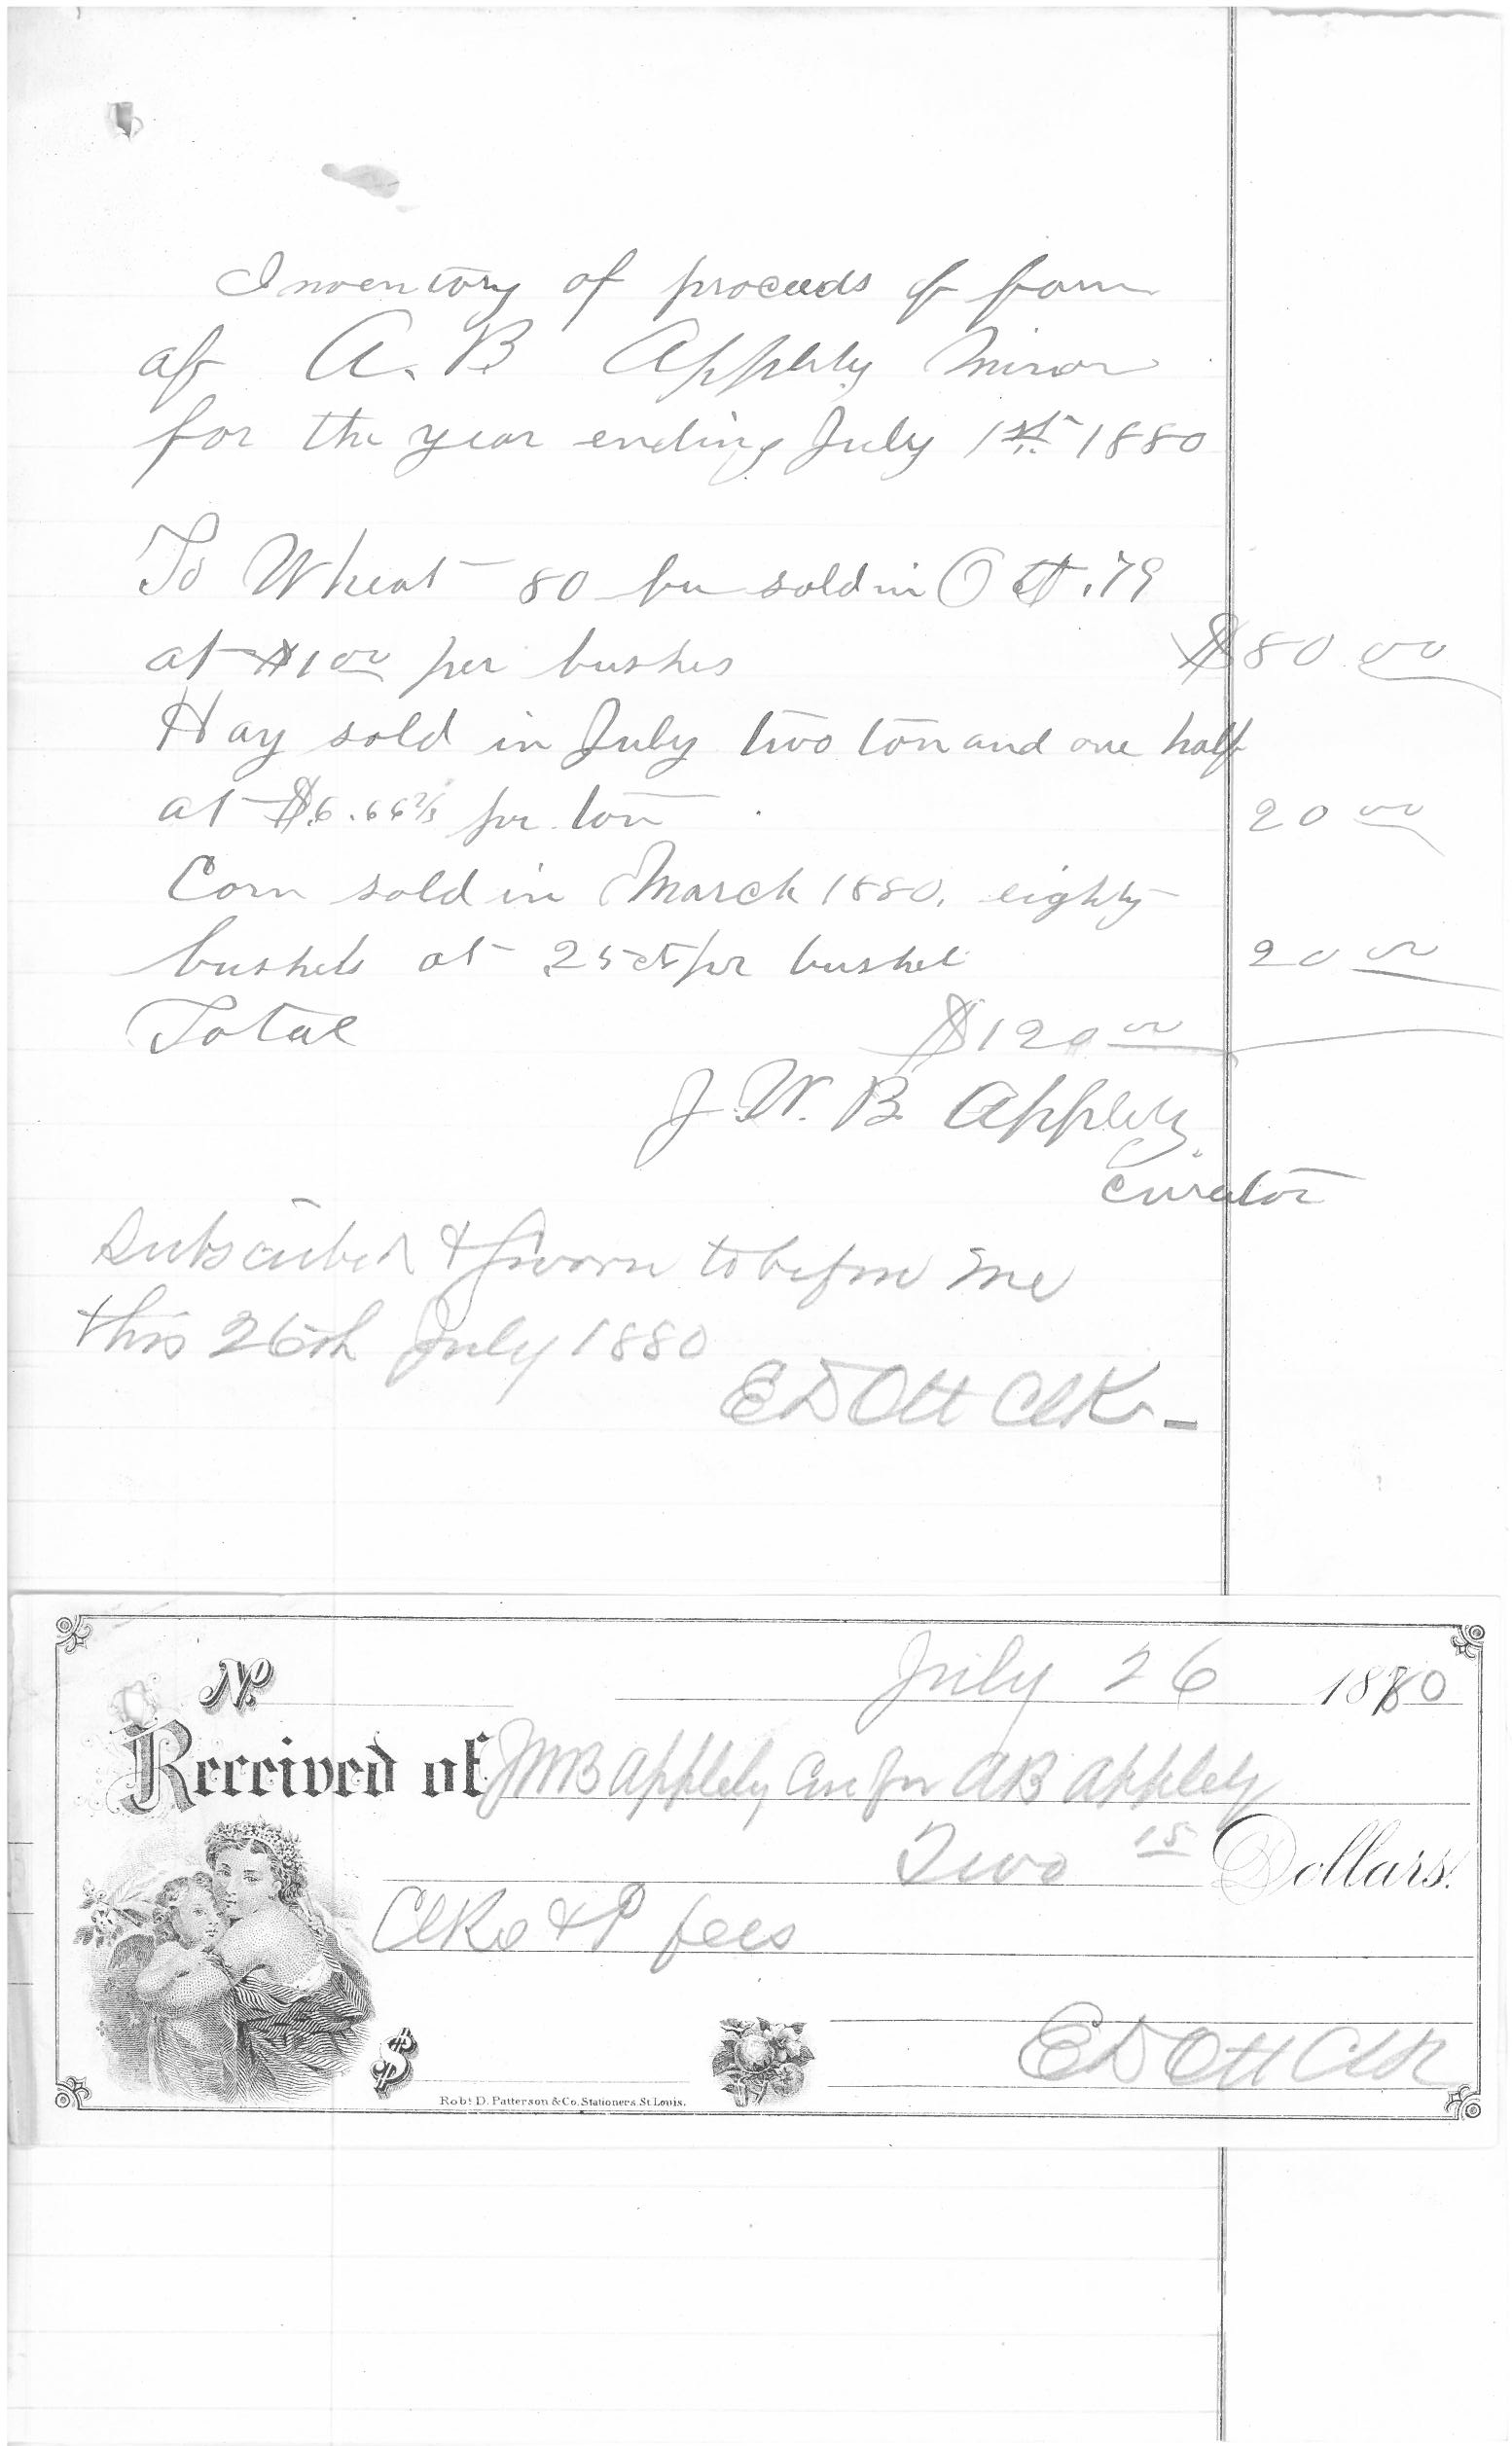 Inventory of proceeds of farm
of A. B Appleby Minor
for the year ending July 1st 1880
To Wheat 80 bu sold in Oct. 79
at $1 00 per bushes $80 00
Hay sold in July two ton and one half
at $6.66 2/3 per ton 20 00
Corn sold in March 1880. eighty
bushels at 25 cts per bushel 20 00
Total $120 00
J. W. B. Appleby
Curator
Subscribed & Sworn to before me
this 26th July 1880
E D Ott Clk
No. July 26 1880
Received of JWB Appleby Cur for AB Appleby
Two 15 Dollars.
Clks & P fees
$ E D Ott Clk
Robt. D. Patterson & Co. Stationers. St. Louis.